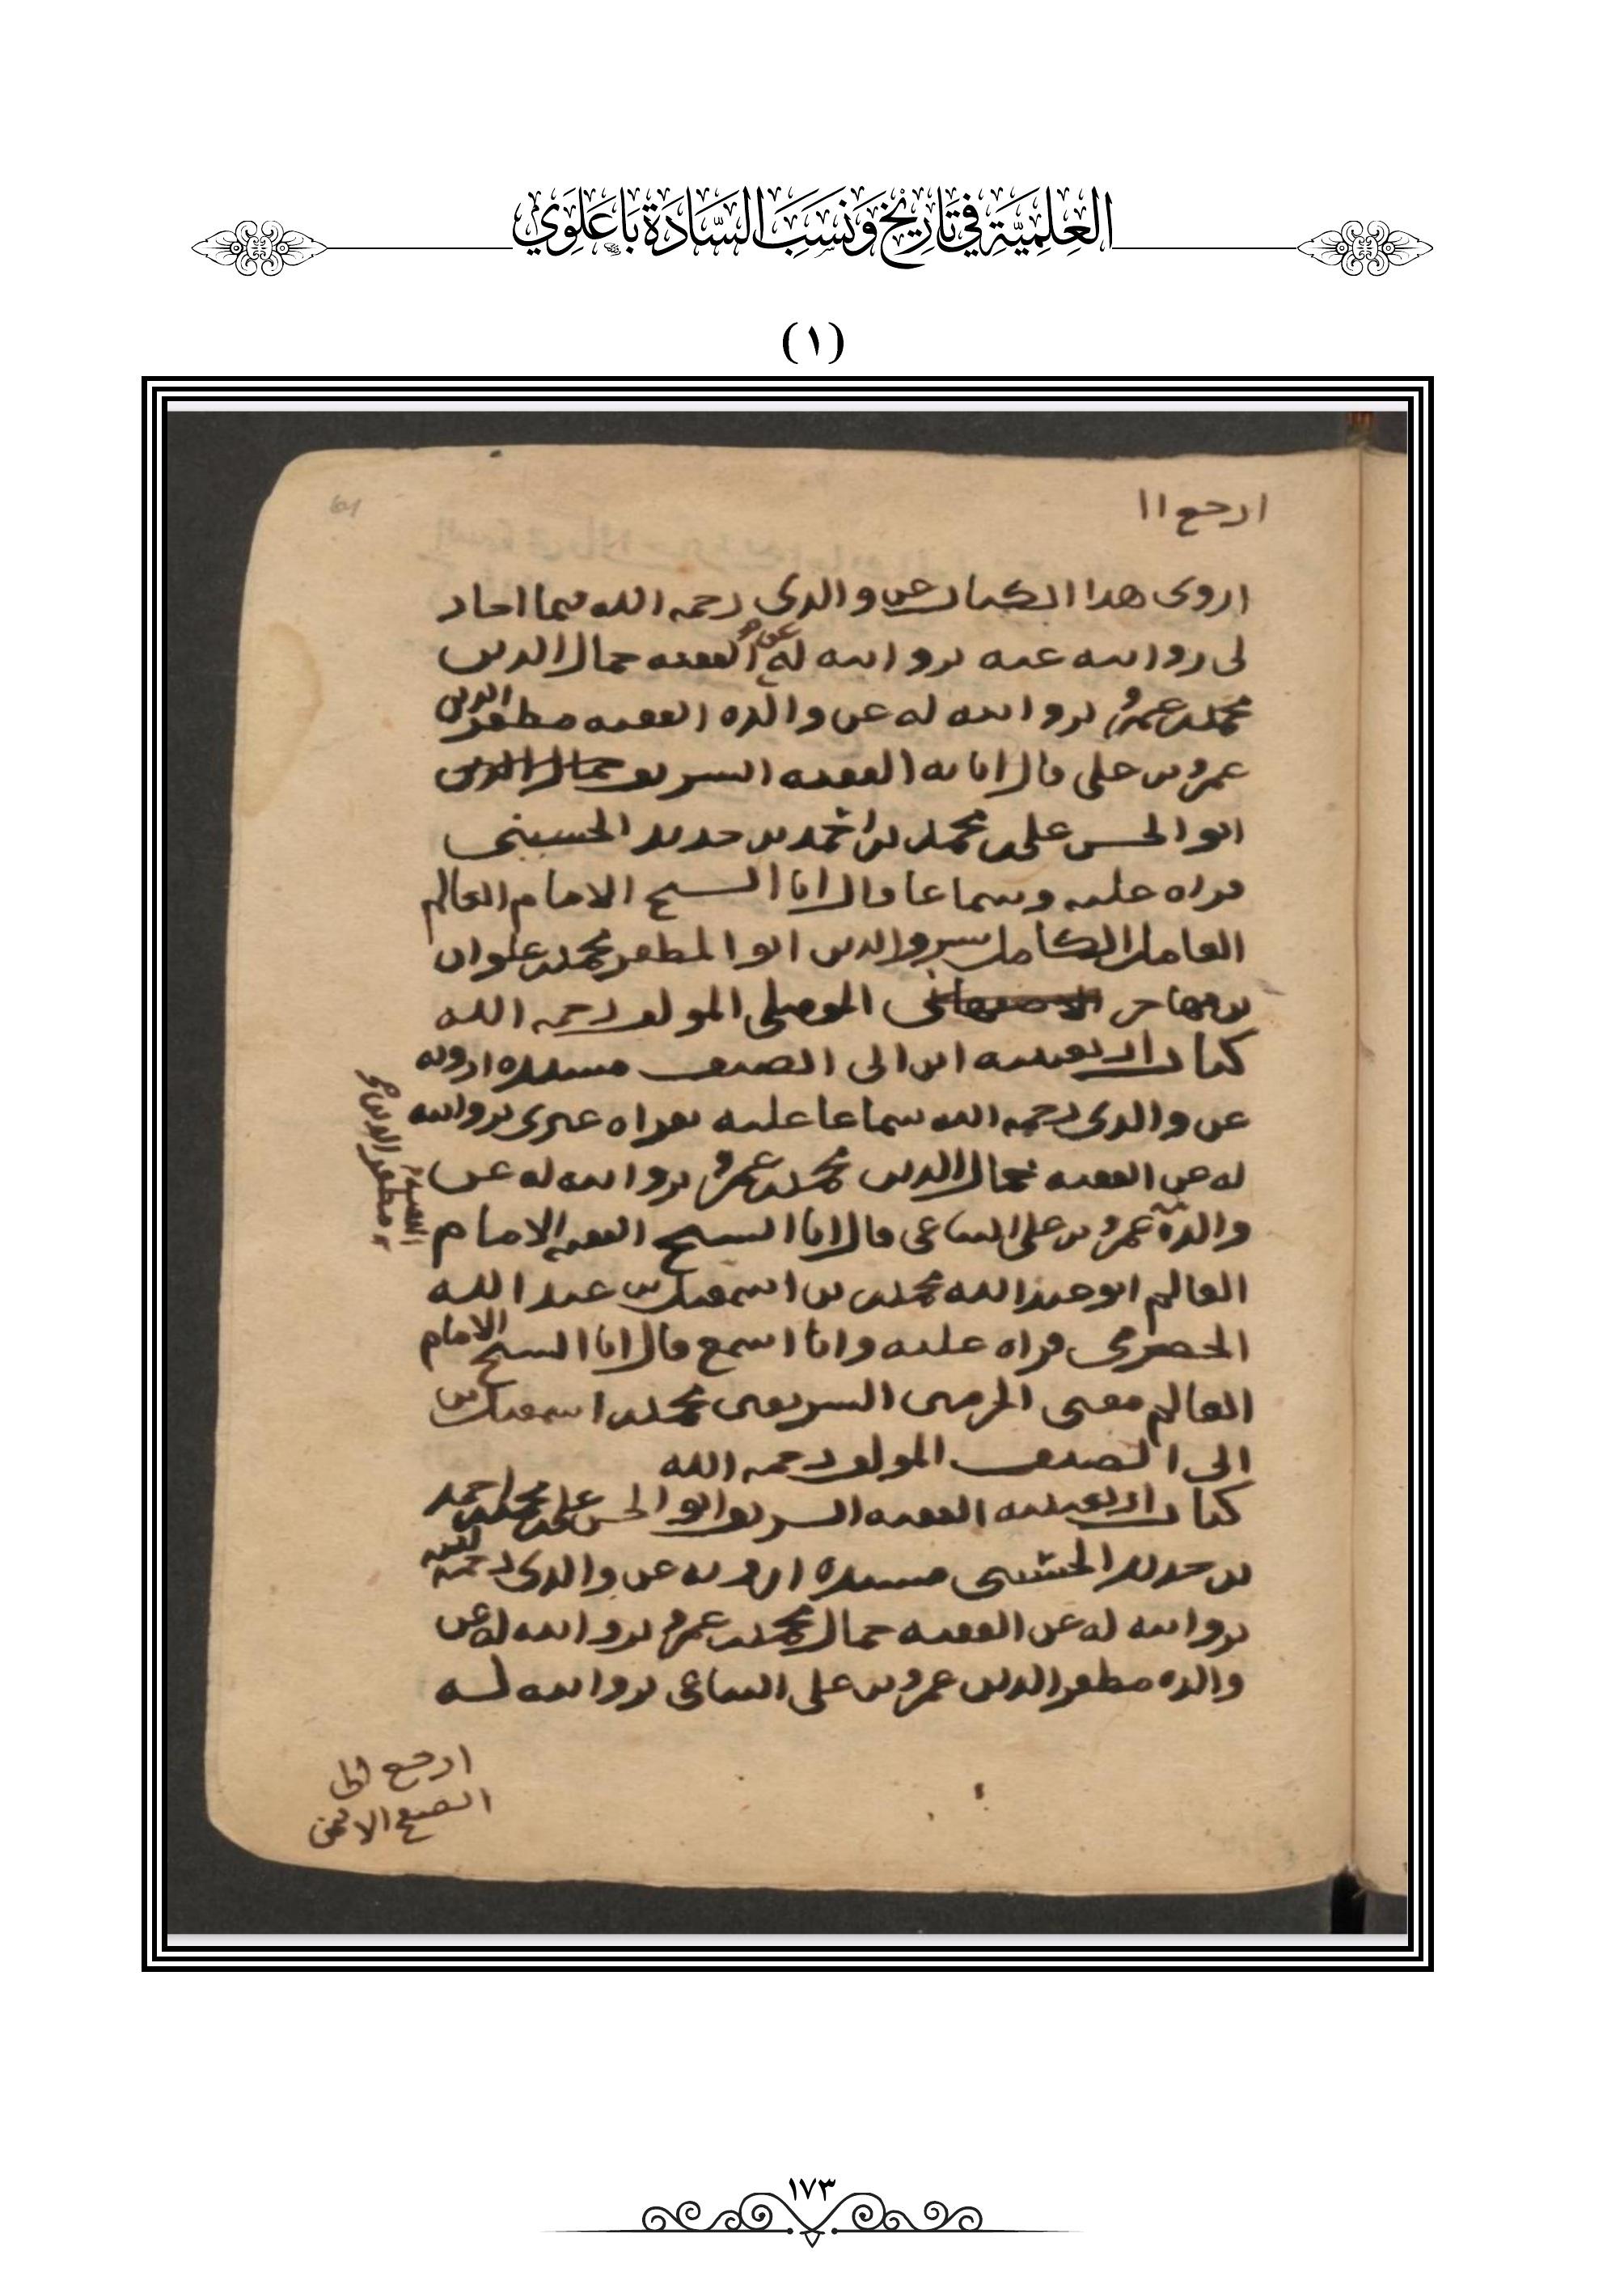 العِلْمِيَّة فِي تَارِيْخ وَنَسَبَ السَّادَة بَاعَلَوِي
(١)
ارجع ١١
اروى هدا الكتاب عن والدى رحمه الله فيما اجاز
لى روايته عنه بروايته له عن الفقيه جمال الدين
محمد بن عمرو بروايته له عن والده الفقيه مظفر الدين
عمرو بن على قال انا به الفقيه الشريف جمال الدين
ابو الحسن على بن محمد بن احمد بن حديد الحسينى
قراه عليه وسماعا قال انا الشيخ الامام العالم
العامل الكامل الدين ابو المظفر محمد بن علوان
بن مهاجر الموصلى المولف رحمه الله
كتاب اربعينيه ابن ابى الصيف مسنده ارويه
عن والدى رحمه الله سماعا عليه بقراه غيرى بروايته
له عن الفقيه جمال الدين محمد بن عمرو بروايته له عن
والده عمرو بن على التباعى قال انا الشيخ الفقيه الامام
العالم ابو عبد الله محمد بن اسمعيل بن عبد الله
الحضرمى قراه عليه وانا اسمع قال انا الشيخ الامام
العالم مفتى الحرمين الشريفين محمد بن اسمعيل بن
ابى الصيف المولف رحمه الله
كتاب اربعينيه الفقيه الشريف ابو الحسن على بن محمد بن احمد
بن حديد الحسينى مسنده ارويه عن والدى رحمه الله
بروايته له عن الفقيه جمال محمد بن عمرو بروايته له عن
والده مظفر الدين عمرو بن على التباعى بروايته له
الفقيه
مظفر الدين
ارجع الى
الصفح الا
١٧٣